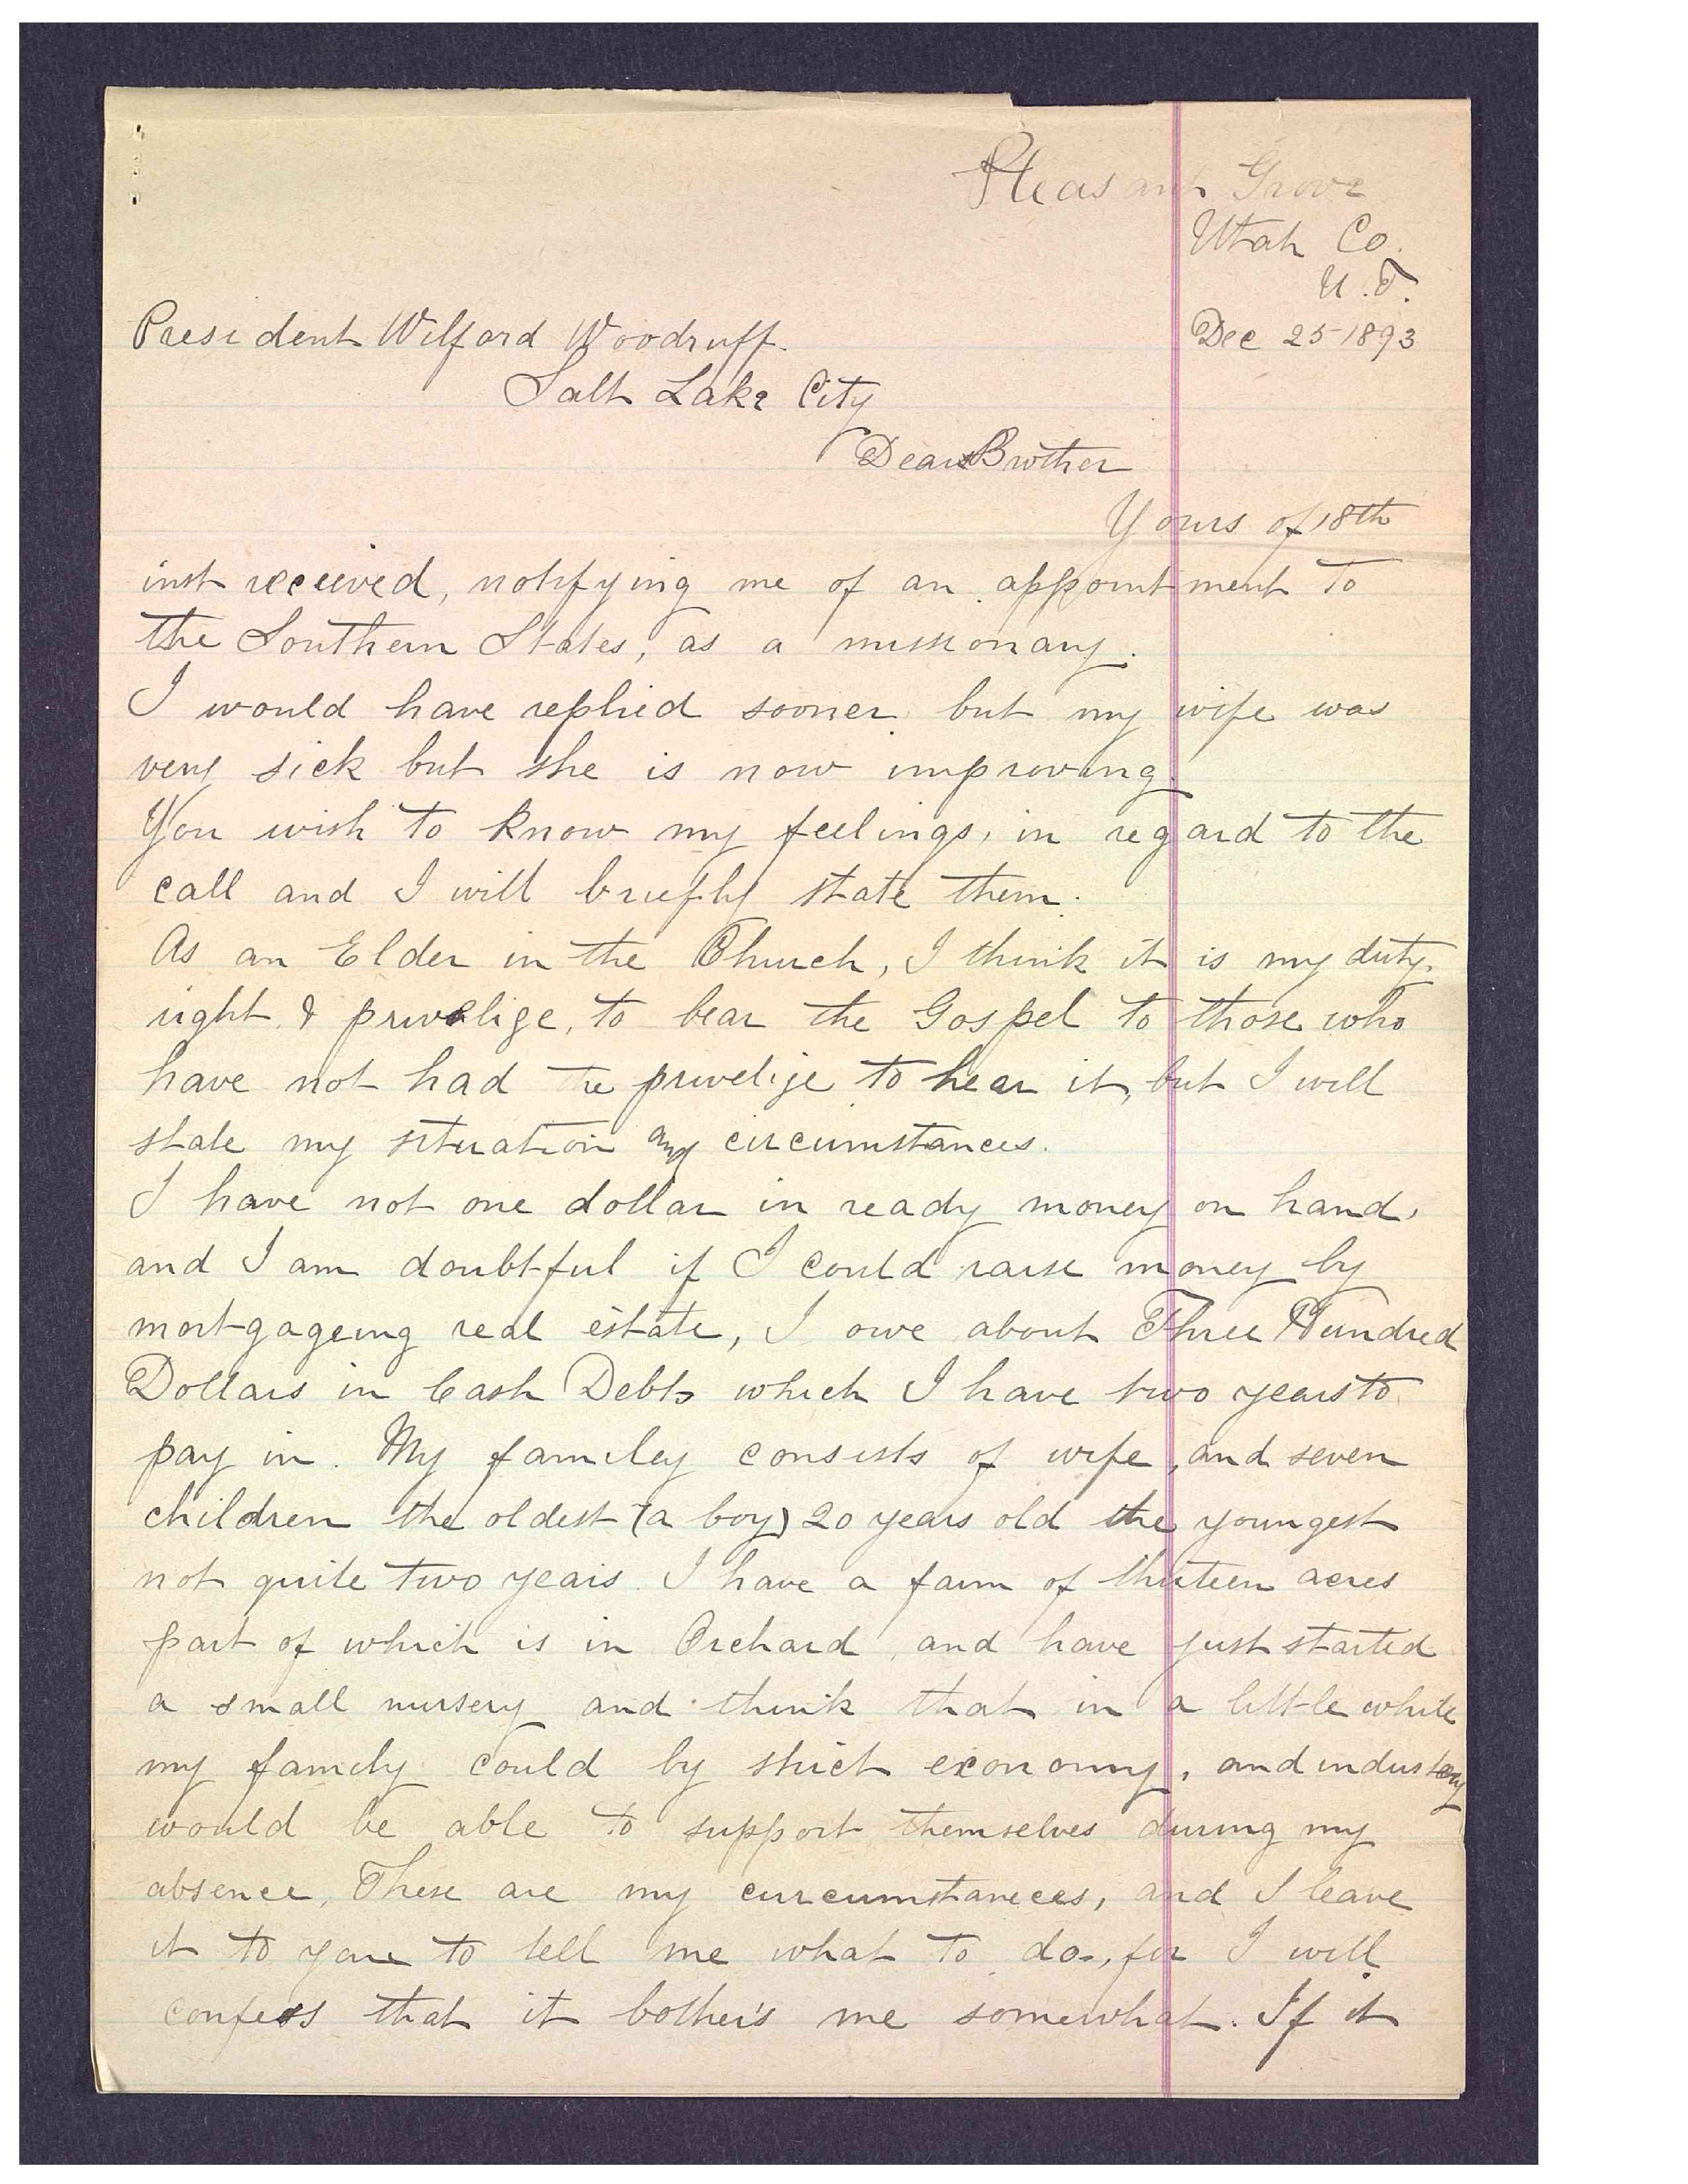 Pleasant Grove
Utah Co.
U.T.
Dec 25-1893
President Wilford Woodruff.
Salt Lake City
Dear Brother
Yours of 18th
inst received, notifying me of an appointment to
the Southern States, as a missionary.
I would have replied sooner but my wife was
very sick but she is now improving.
You wish to know my feelings, in regard to the
call and I will briefly state them.
As an Elder in the Church, I think it is my duty,
right & privelige, to bear the Gospel to those who
have not had the privelige to hear it, but I will
state my situation and circumstances.
I have not one dollar in ready money on hand,
and I am doubtful if I could raise money by
mortgageing real estate, I owe about Three Hundred
Dollars in Cash Debts which I have two years to
pay in. My familey consists of wife, and seven
children the oldest (a boy) 20 years old the youngest
not quite two years. I have a farm of thirteen acres
part of which is in Orchard, and have just started
a small nursery and think that in a little while
my family could by strict economy, and industery
would be able to support themselves during my
absence, These are my circumstances, and I leave
it to you to tell me what to do, for I will
confess that it bother's me somewhat. If it